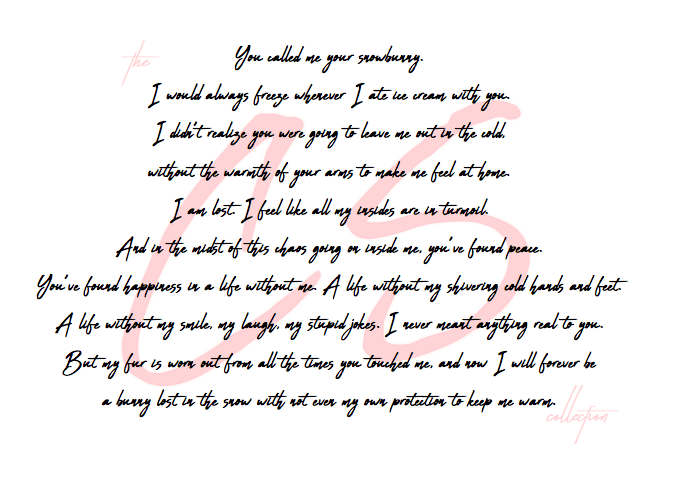 the
You called me your snowbunny.
I would always freeze whenever I ate ice cream with you.
I didn't realize you were going to leave me out in the cold,
without the warmth of your arms to make me feel at home.
I am lost. I feel like all my insides are in turmoil.
And in the midst of this chaos going on inside me, you've found peace.
You've found happiness in a life without me. A life without my shivering cold hands and feet.
A life without my smile, my laugh, my stupid jokes. I never meant anything real to you.
But my fur is worn out from all the times you touched me, and now I will forever be
a bunny lost in the snow with not even my own protection to keep me warm.
CS
collection